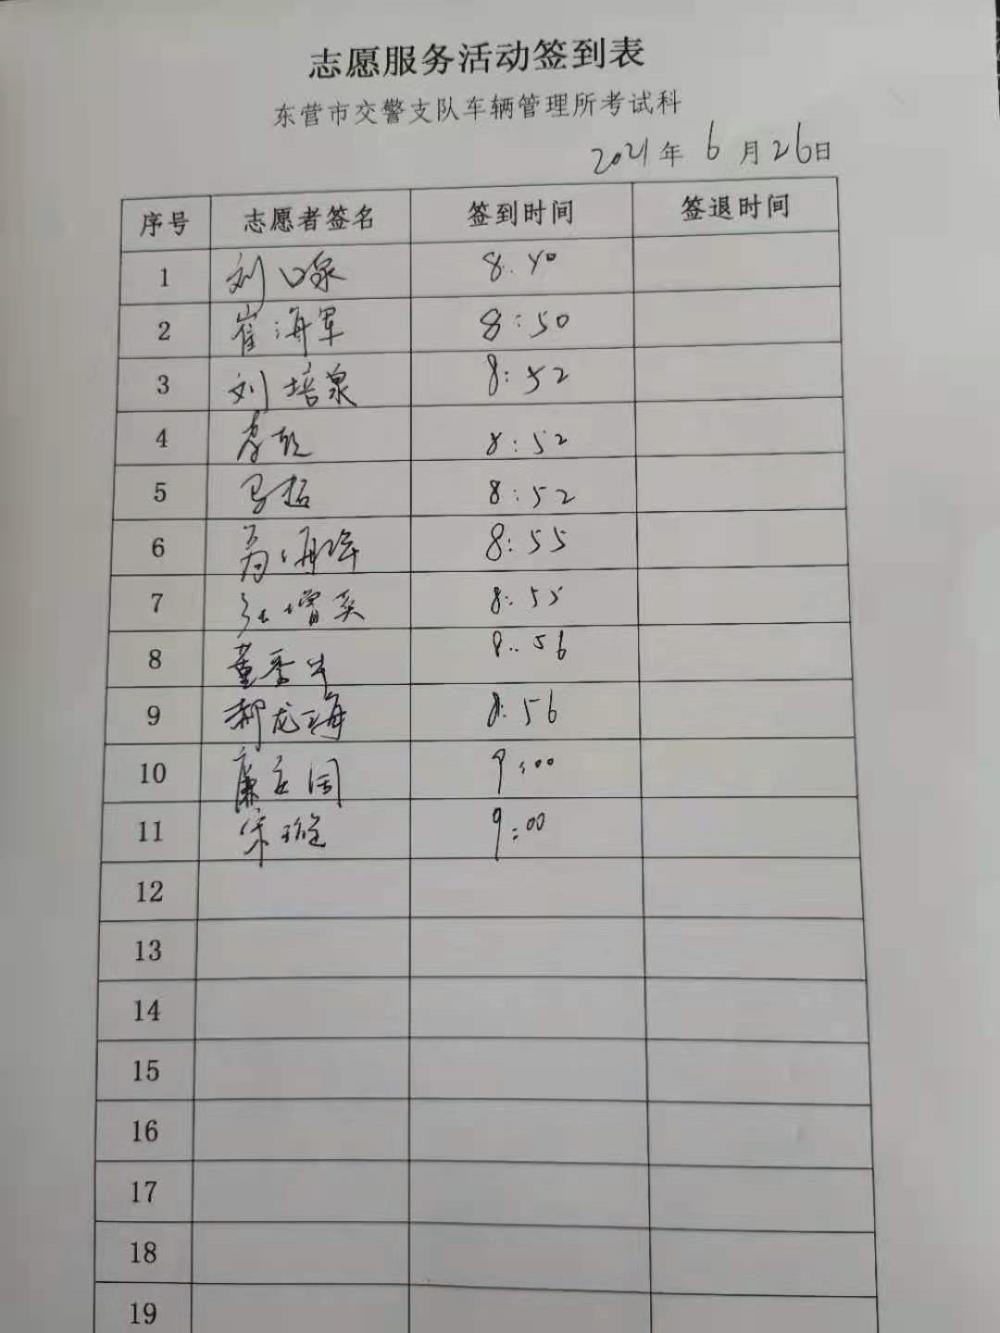 志愿服务活动签到表
东营市交警支队车辆管理所考试科
2021年 6月26日
序号 志愿者签名 签到时间 签退时间
1 刘 泉 8:40
2 崔海军 8:50
3 刘培泉 8:52
4 8:52
5 马 8:52
6 海 8:55
7 增 8:55
8 董 8:56
9 郝龙海 8:56
10 廉 9:00
11 9:00
12
13
14
15
16
17
18
19